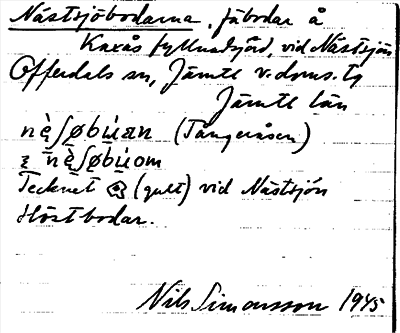 Nästsjöbodarna, fäbodar å
Kaxås fyllnadsjord, vid Nästsjön
Offerdals sn, Jämtl. v. doms. tg
Jämtl län
nẹ̀ʃøbùan (Tångeråsen)
nẹ̀ʃøbùom
Tecknet (gult) vid Nästsjön
Höstbodar.
Nils Simonsson 1945